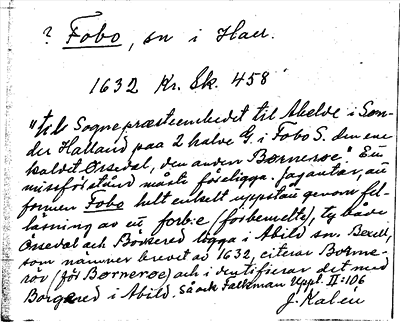 ? Fobo, sn i Hall.
1632 Kr. Sk. 458
"till Sognepræsteembedet til Abelde i Søn-
der Halland paa 2 halve G. i Fobo S. den ene
kaldet Ørsedal, den anden Børnerøe". Ett
missförstånd måste föreligga. Jag antar, att
formen Fobo helt enkelt uppstått genom fel-
läsning av ett forb:e (forbemelte), ty både
Örsedal och Bönsered ligga i Abild sn. Bexell,
som nämner brevet av 1632, citerar Borne-
röv (för Børnerøe) och identifierar det med
i Abild. Så ock Falkman Uppl. II:106
J. Kalén